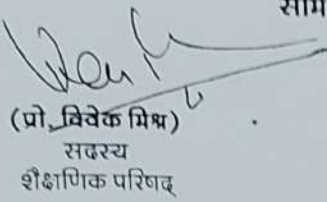 (प्रो. विवेक मिश्र)
सदस्य
शैक्षणिक परिषद्